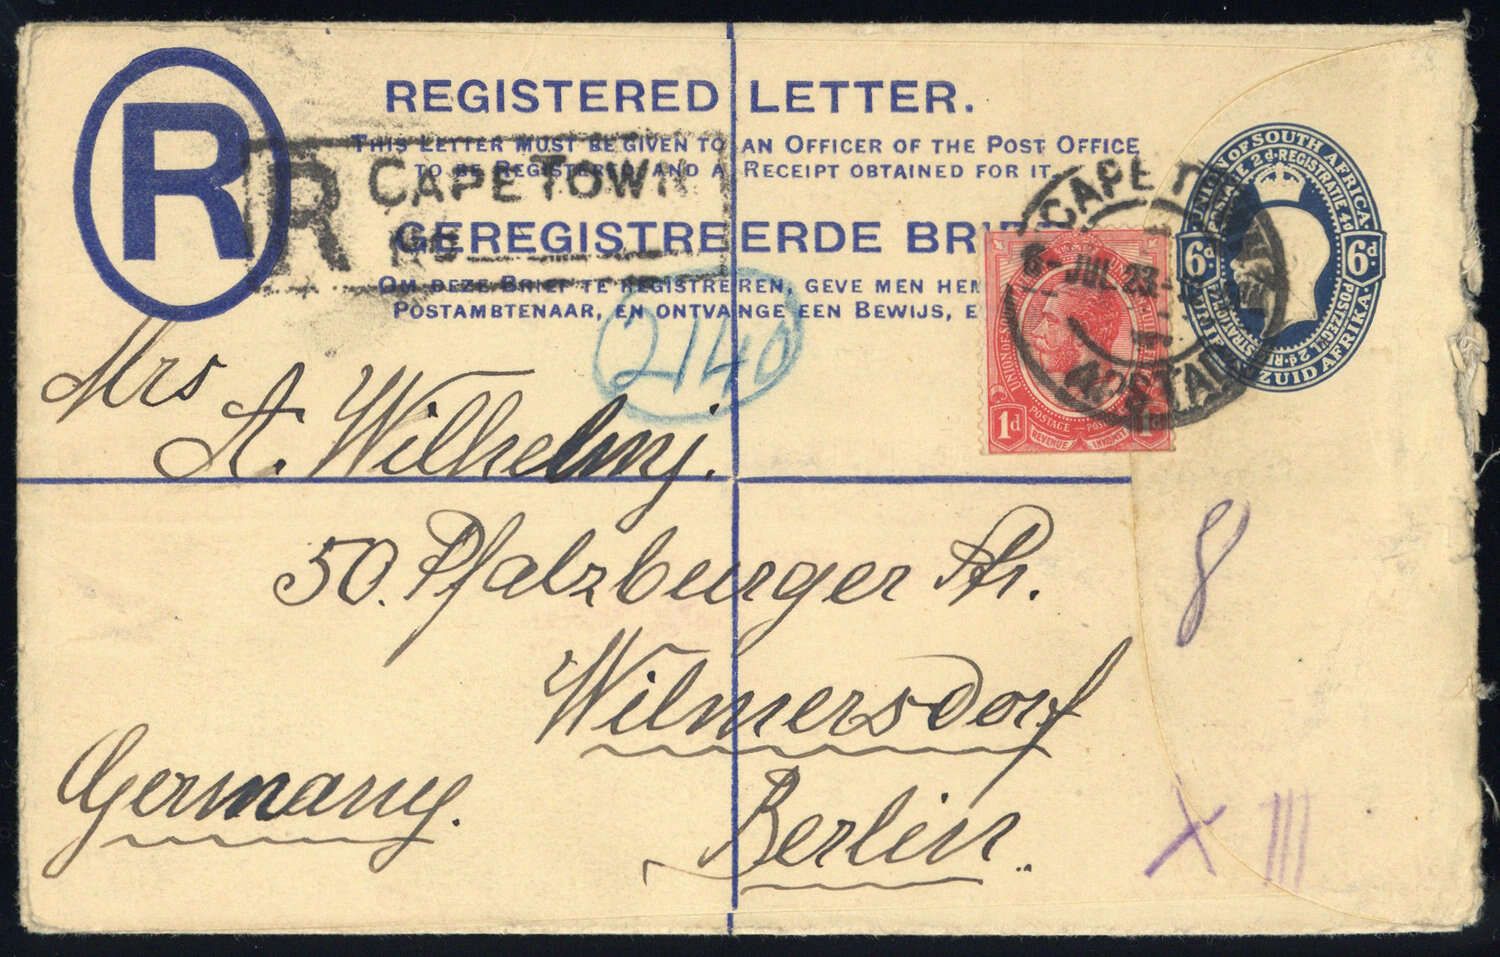 R
REGISTERED LETTER.
THIS LETTER MUST BE GIVEN TO AN OFFICER OF THE POST OFFICE
TO BE REGISTERED AND A RECEIPT OBTAINED FOR IT.
R CAPE TOWN
No
GEREGISTREERDE
OM DEZE BRIEF TE REGISTREREN, GEVE MEN
POSTAMBTENAAR, EN ONTVANGE EEN BEWIJS,
2140
CAPE
JUL 23
UNION OF SOUTH AFRICA
POSTAGE 2d. REGISTRATIE 4d
6d 6d
POSTZEGEL 2d.
ZUID AFRIKA
UNION OF SOUTH
POSTAGE
REVENUE INKOMST
1d 1d
Mrs
A. Wilhelmj.
50. Pfalzburger Str.
Wilmersdorf
Germany.
Berlin.
8
X III